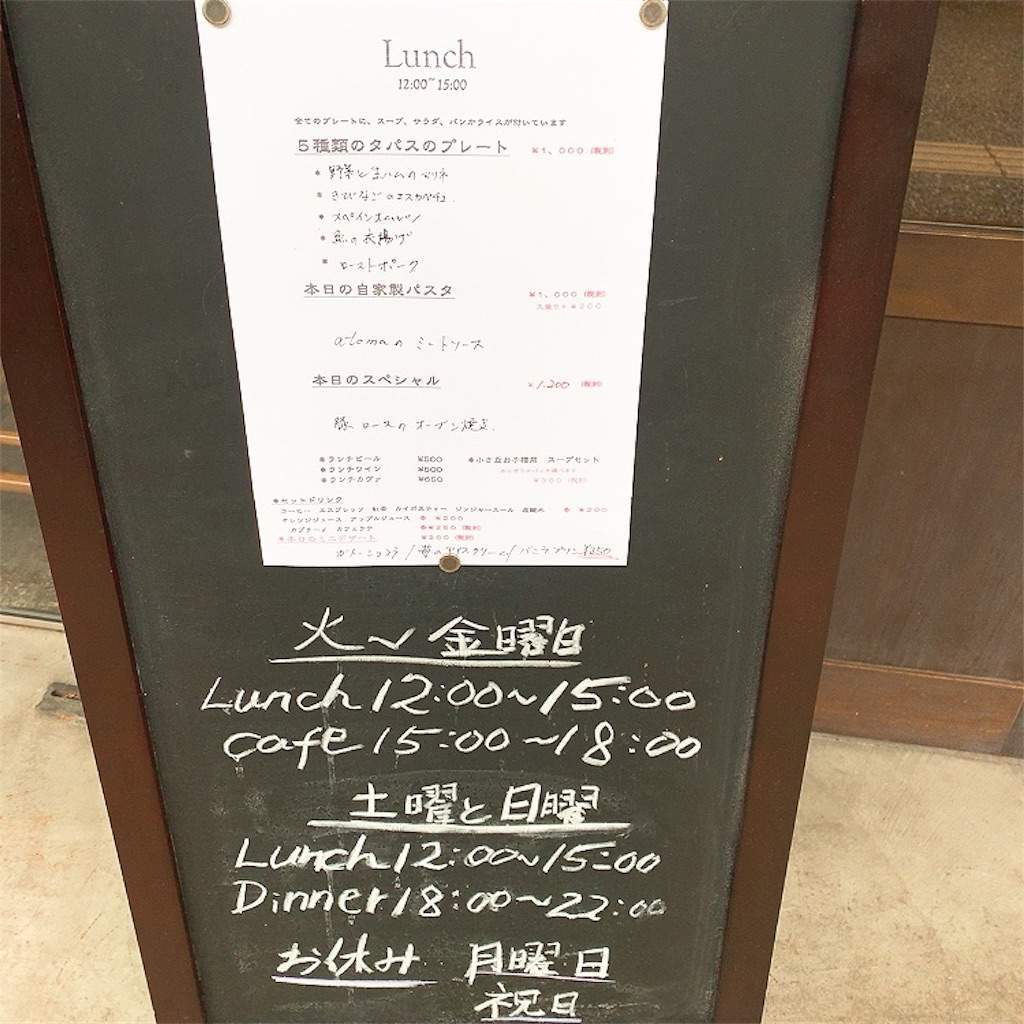 Lunch
12:00~15:00
全てのプレートに、スープ、サラダ、パンかライスが付いています
5種類のタパスのプレート ¥1,000 (税別)
* 野菜と生ハムのマリネ
* きびなごのエスカベチェ
* スペインオムレツ
* 魚の衣揚げ
* ローストポーク
本日の自家製パスタ ¥1,000 (税別)
大盛り+¥200
atomaのミートソース
本日のスペシャル ¥1,200 (税別)
豚ロースのオーブン焼き
*ランチビール ¥500 *小さなお子様用 スープセット
*ランチワイン ¥600
*ランチカヴァ ¥650 ¥300 (税別)
*セットドリンク
コーヒー エスプレッソ 紅茶 ルイボスティー ジンジャーエール 炭酸水 ¥200
オレンジジュース アップルジュース ¥200
カプチーノ カフェラテ ¥250 (税別)
*本日のミニデザート ¥200 (税別)
ガトーショコラ/苺のアイスクリーム/バニラプリン ¥350
火~金曜日
Lunch 12:00~15:00
cafe 15:00~18:00
土曜と日曜
Lunch 12:00~15:00
Dinner 18:00~22:00
お休み 月曜日
祝日